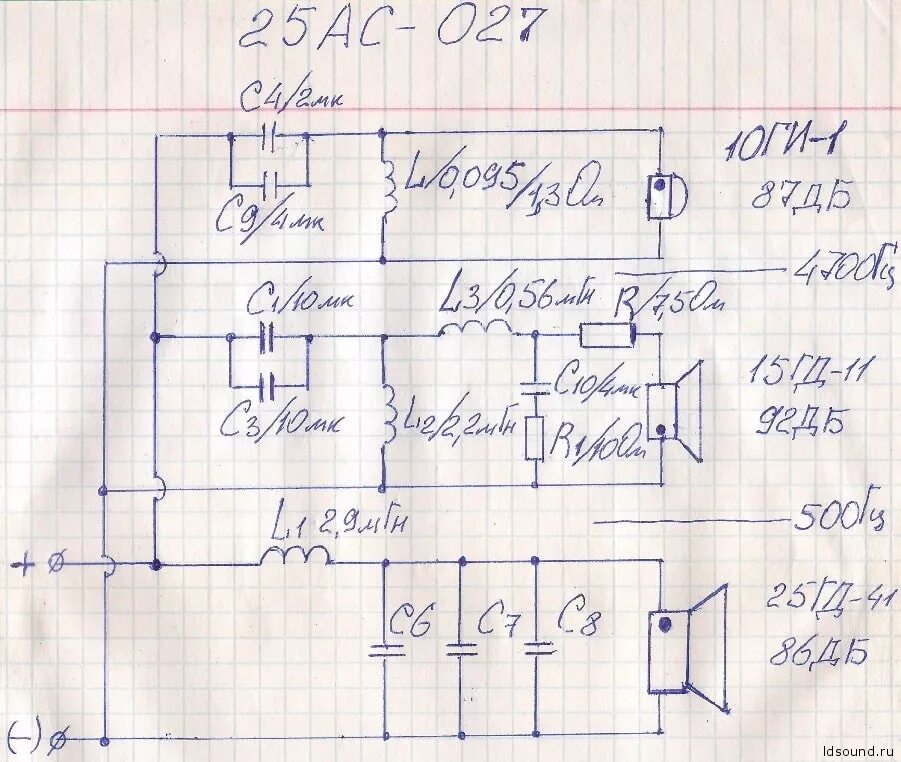 25АС-027
С4/2мк
С9/4мк
L/0,095/1,3Ом
10ГИ-1
87ДБ
4700Гц
С1/10мк
С3/10мк
L3/0,56мГн
R/7,5Ом
L2/2,2мГн
С10/4мк
R1/10Ом
15ГД-11
92ДБ
500Гц
L1 2,9мГн
+
С6
С7
С8
25ГД-41
86ДБ
(-)
ldsound.ru